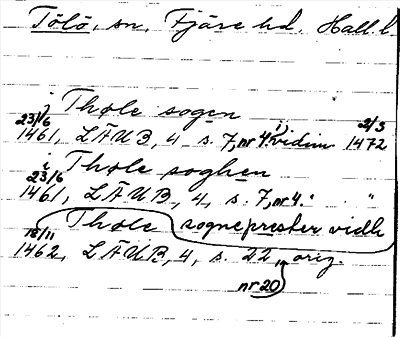 Tölö, sn, Fjäre hd. Hall. l.
i Thøle sogen
23/6 1461, LÄUB, 4, s. 7, nr 4. i) vidim 2/3 1472
i Thøle soghen
23/6 1461, LÄUB, 4, s. 7, nr 4. " "
Thøle sogneprester vidh
18/11 1462, LÄUB, 4, s. 22, orig.
nr 20